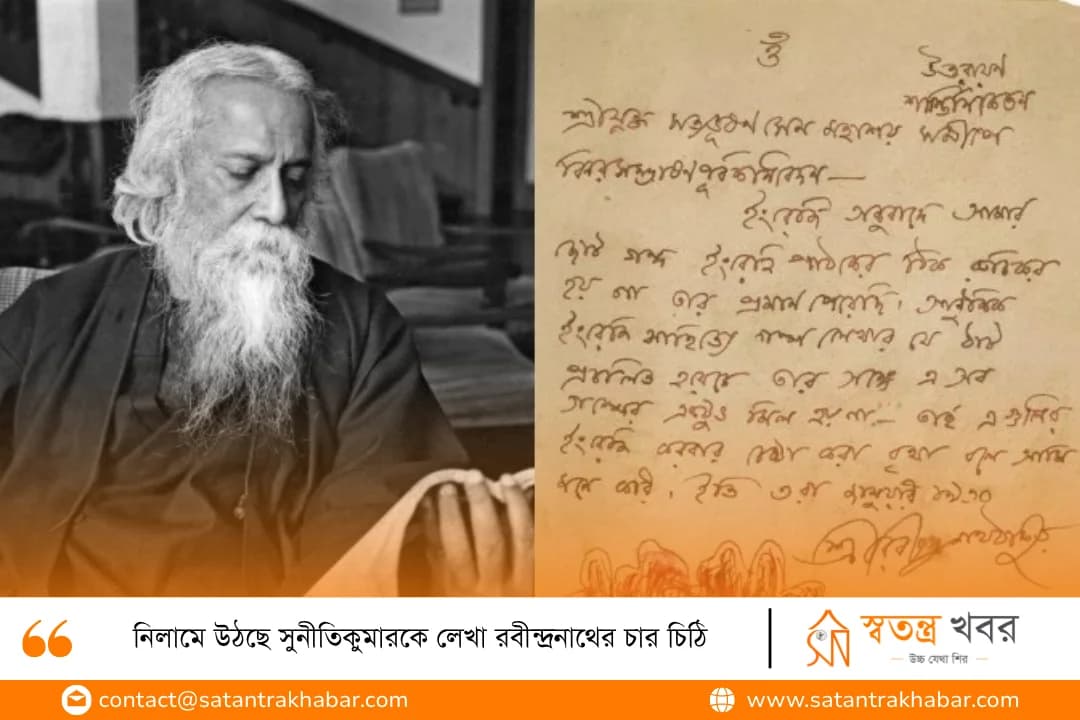 ওঁ
উত্তরায়ণ
শান্তিনিকেতন
শ্রীযুক্ত সত্যভূষণ সেন মহাশয় সমীপে
বিনয়সম্ভাষণপূর্বক নিবেদন—
ইংরেজি অনুবাদে আমার
ছোট গল্প ইংরেজি পাঠকের ঠিক রুচিকর
হয় না তার প্রমাণ পেয়েছি। আধুনিক
ইংরেজি সাহিত্যে গল্প লেখার যে ঠাট
প্রচলিত হয়েছে তার সঙ্গে এ সব
গল্পের একটুও মিল হয় না— তাই এগুলির
ইংরেজি করবার চেষ্টা করা বৃথা বলে আমি
মনে করি। ইতি ৩রা জানুয়ারী
শ্রীরবীন্দ্রনাথ ঠাকুর
নিলামে উঠছে সুনীতিকুমারকে লেখা রবীন্দ্রনাথের চার চিঠি
SN
স্বতন্ত্র খবর
উচ্চ যেথা শির
contact@satantrakhabar.com
www.satantrakhabar.com